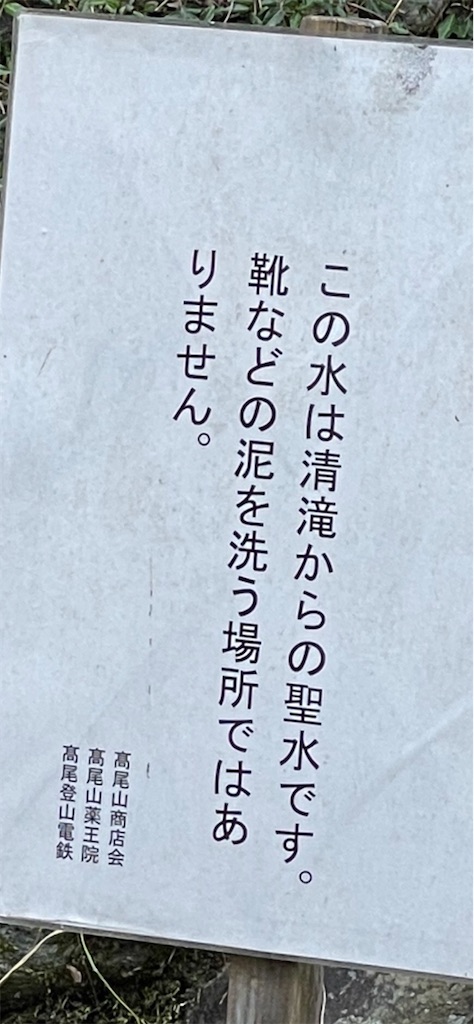 この水は清滝からの聖水です。
靴などの泥を洗う場所ではあ
りません。
髙尾山商店会
髙尾山薬王院
髙尾登山電鉄